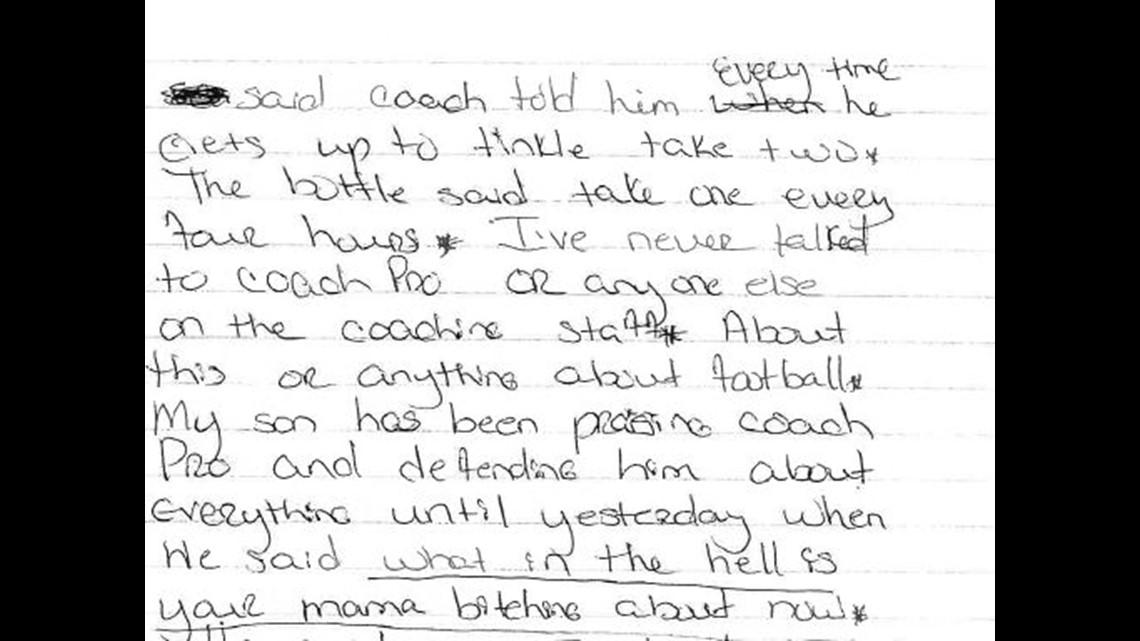 every time
said coach told him when he
Gets up to tinkle take two*
The bottle said take one every
four hours* I've never talked
to coach Pro OR anyone else
on the coaching staff* About
this or anything about football*
My son has been praising coach
Pro and defending him about
Everything until yesterday when
He said what in the hell is
your mama bitching about now*